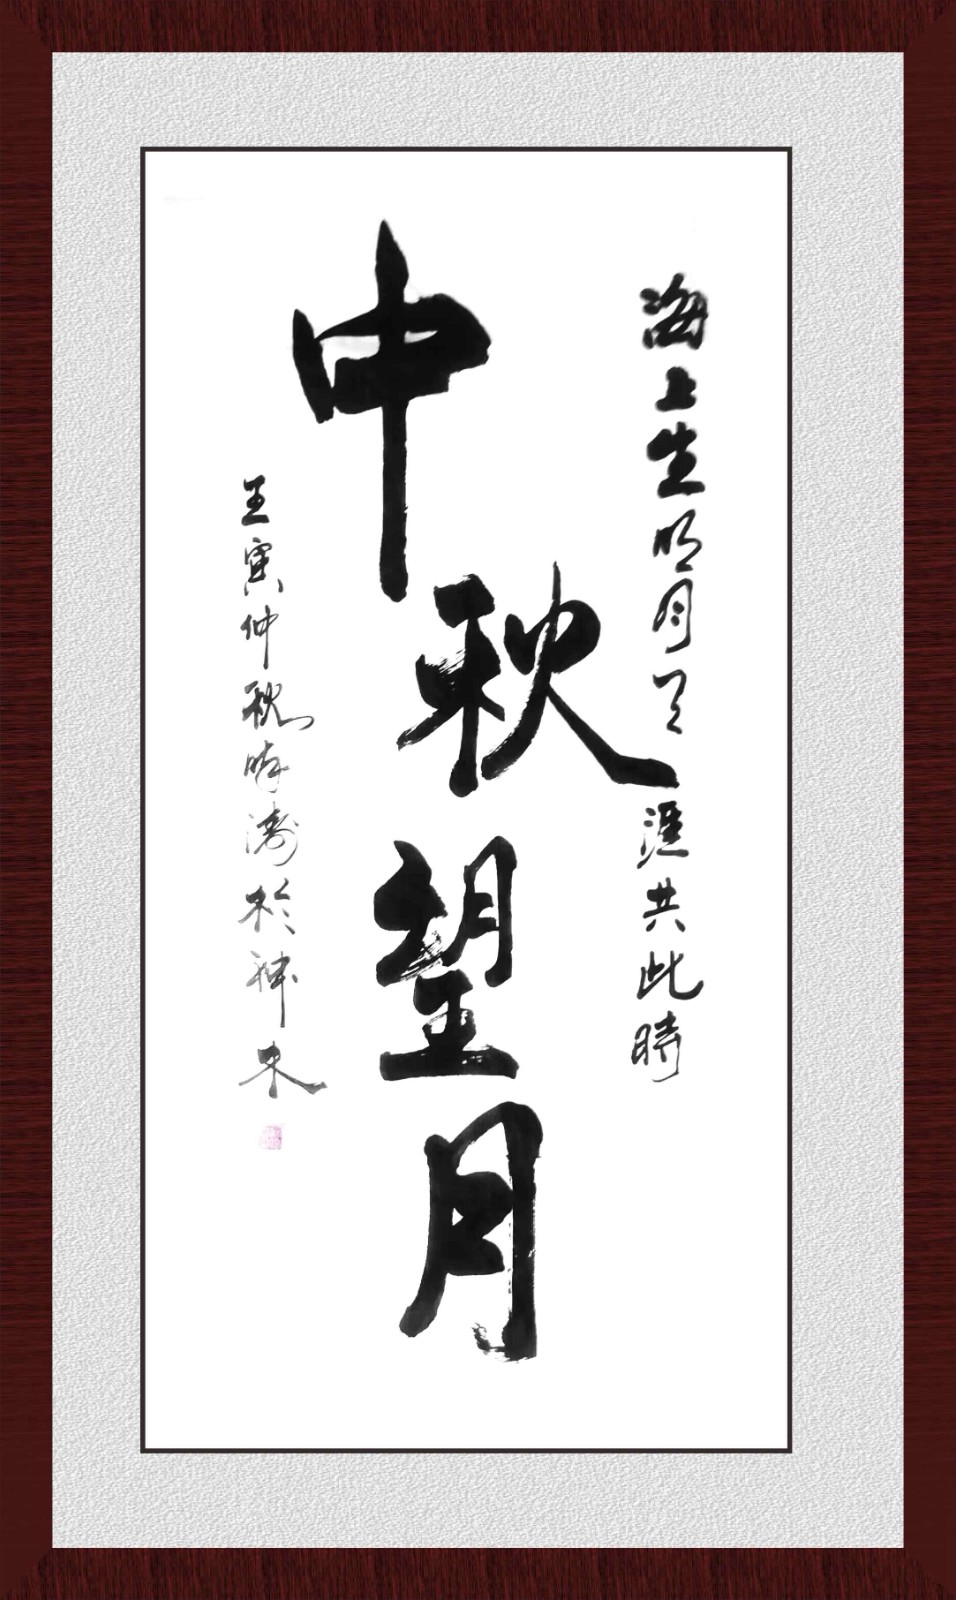 海上生明月天涯共此時
中秋望月
壬寅仲秋 濤於